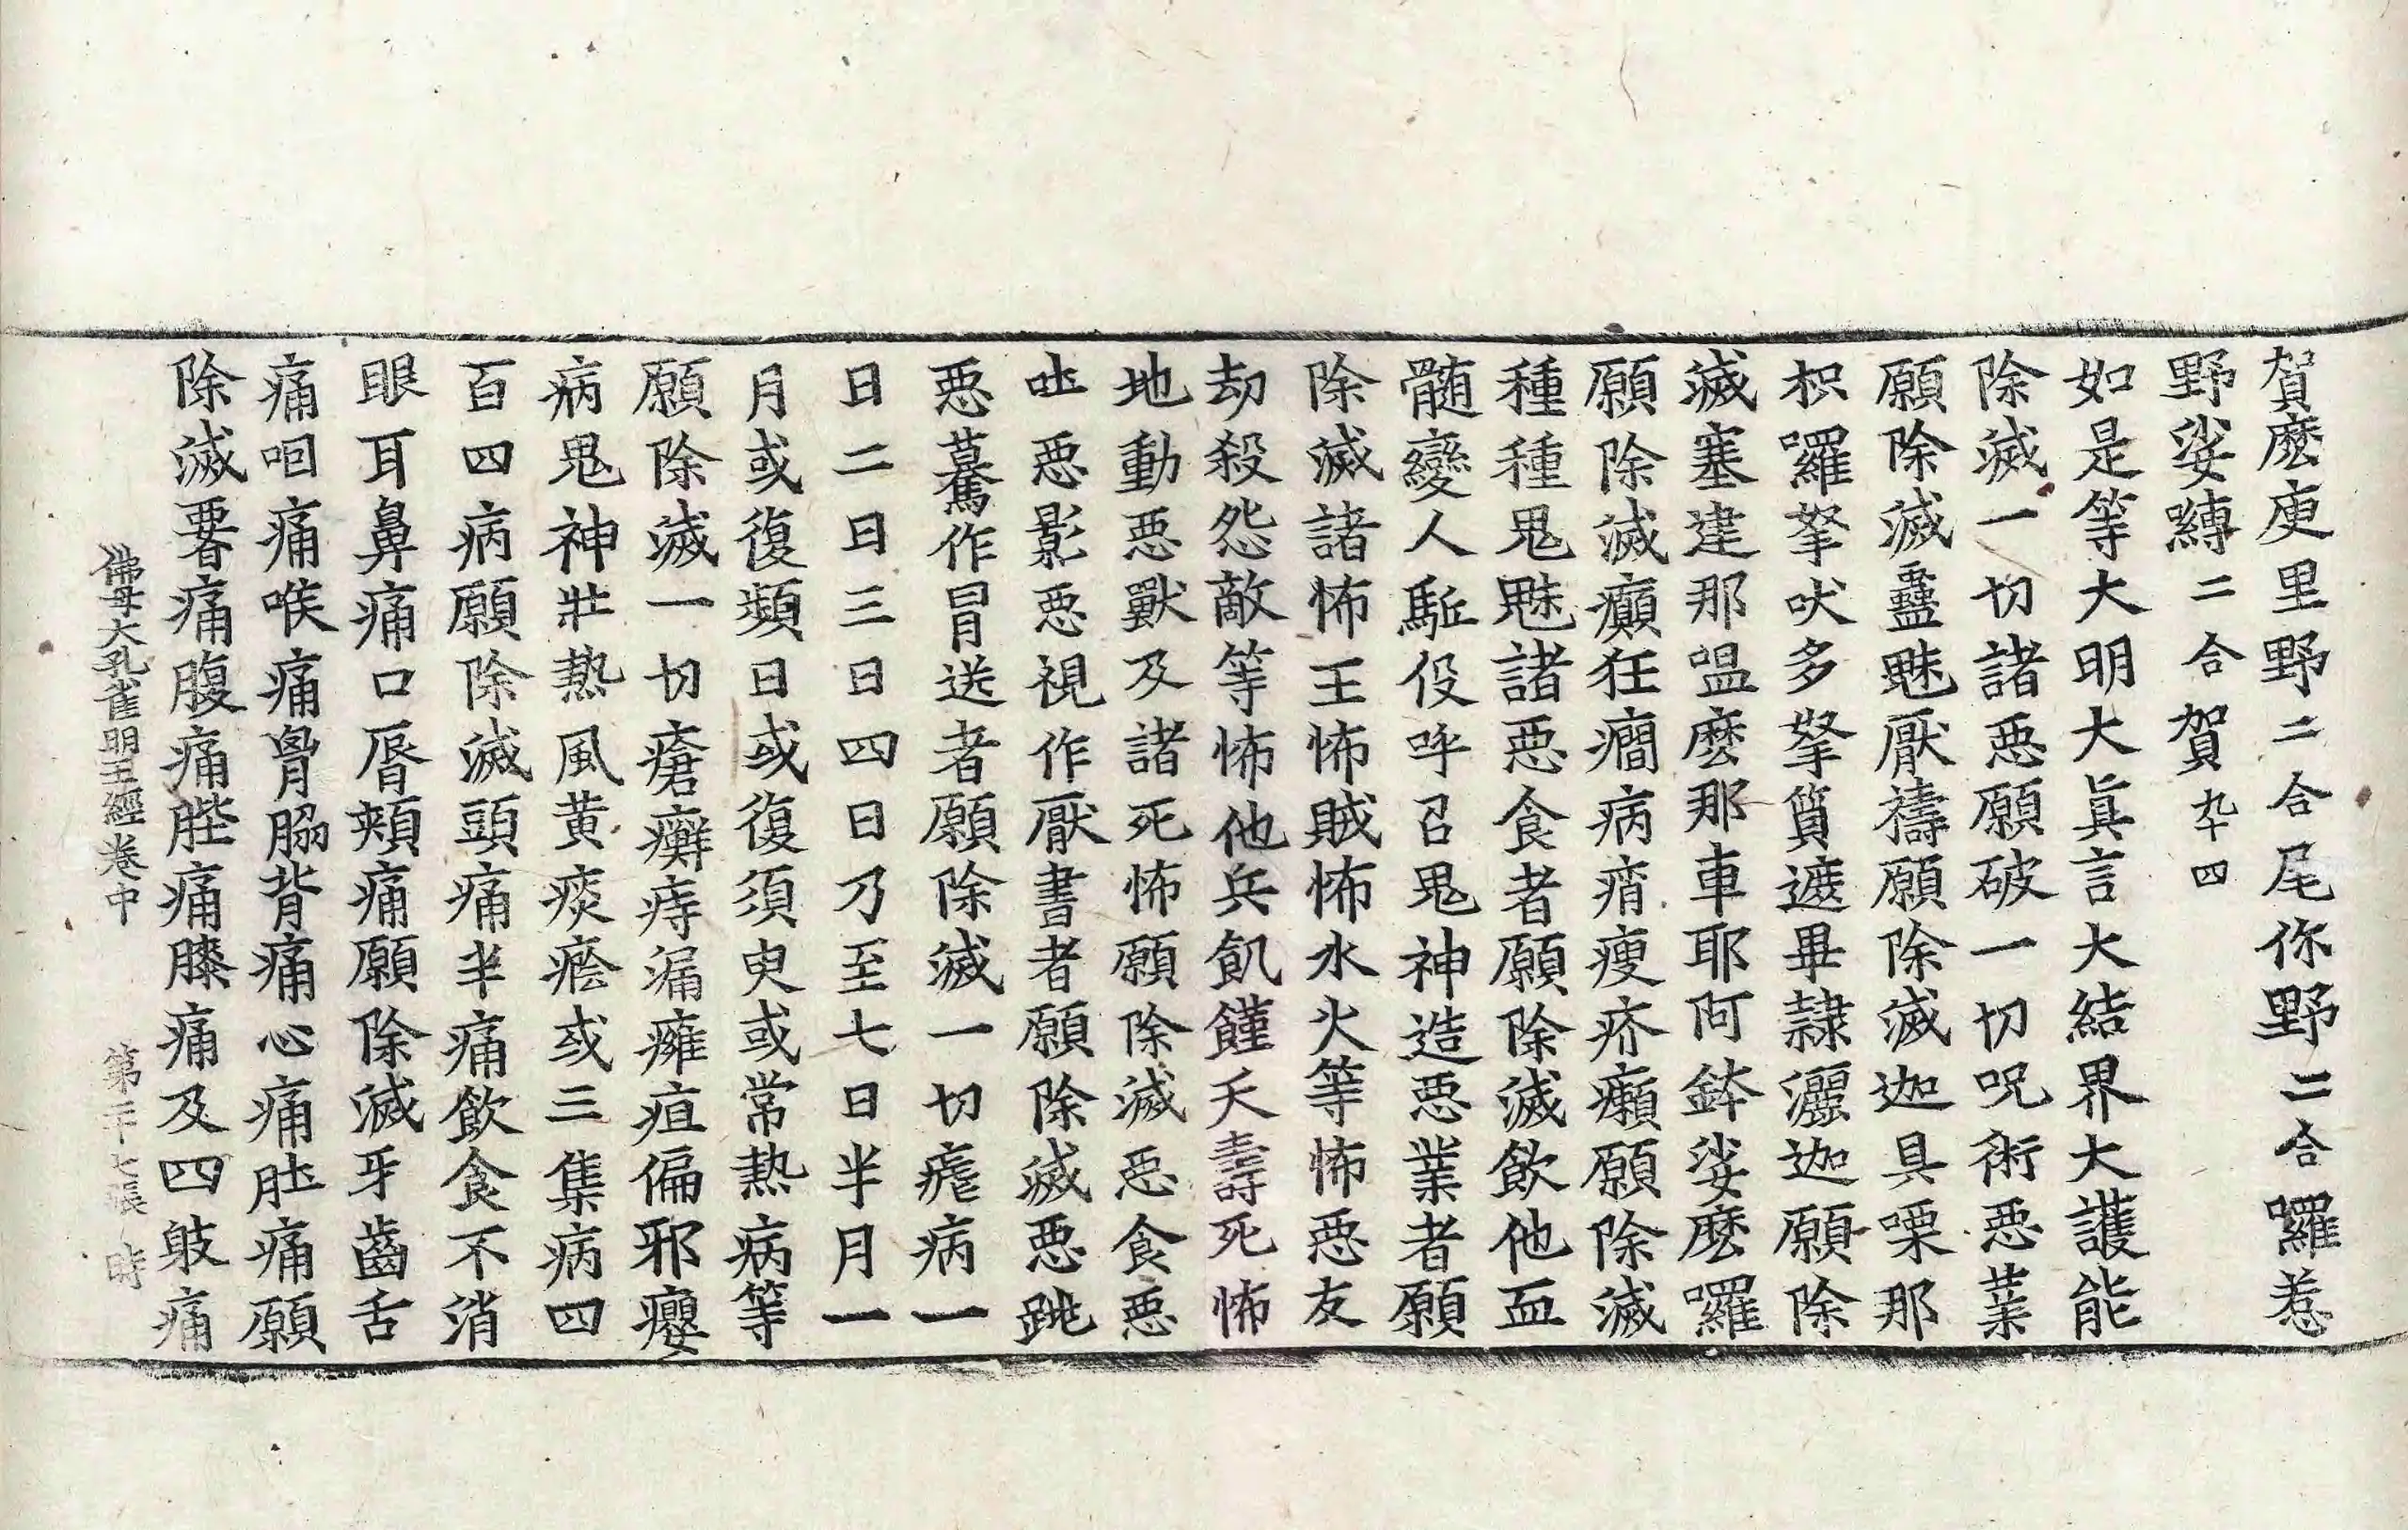 賀麽庾里野二合尾你野二合囉惹
野娑嚩二合賀九十四
如是等大明大眞言大結界大護能
除滅一切諸惡願破一切呪術惡業
願除滅蠱魅厭禱願除滅迦具㗚那
枳囉拏吠多拏質遮畢隸灑迦願除
滅塞建那嗢麽那車耶阿鉢娑麽囉
願除滅癲狂癎病痟瘦疥癩願除滅
種種鬼魅諸惡食者願除滅飮他血
髓變人駈役呼召鬼神造惡業者願
除滅諸怖王怖賊怖水火等怖惡友
劫殺怨敵等怖他兵飢饉夭壽死怖
地動惡獸及諸死怖願除滅惡食惡
吐惡影惡視作厭書者願除滅惡跳
惡驀作冒送者願除滅一切瘧病一
日二日三日四日乃至七日半月一
月或復頻日或復須臾或常熱病等
願除滅一切瘡癬痔漏癰疽偏邪癭
病鬼神壯熱風黃痰癊或三集病四
百四病願除滅頭痛半痛飮食不消
眼耳鼻痛口脣頰痛願除滅牙齒舌
痛咽痛喉痛胷脇背痛心痛肚痛願
除滅𦝫痛腹痛䏶痛膝痛及四躄痛
佛母大孔雀明王經卷中　第二十七張　時